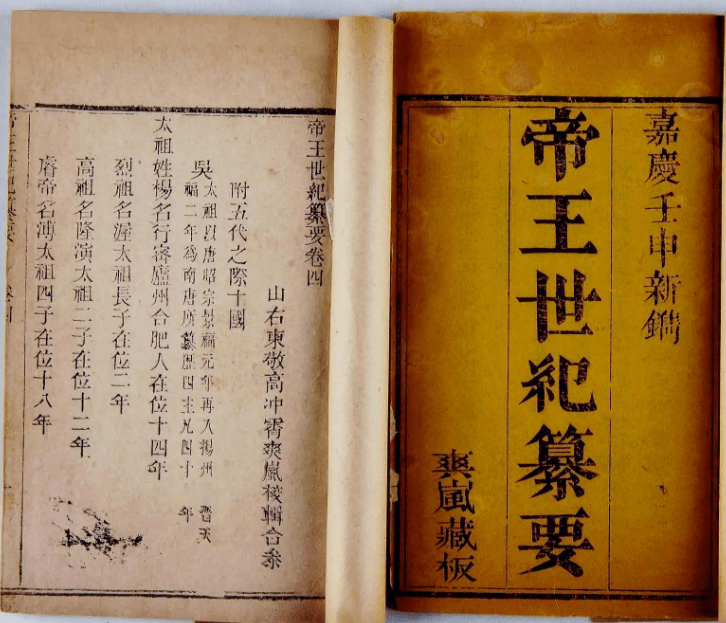 嘉慶壬申新鐫
帝王世紀纂要
爽嵐藏板
帝王世紀纂要卷四
山右東敬高冲霄爽嵐校輯合參
附五代之際十國
吳 太祖以唐昭宗景福元年再入揚州 晉天
福二年為南唐所篡歷四主凡四十 年
太祖姓楊名行密廬州合肥人在位十四年
烈祖名渥太祖長子在位二年
高祖名隆演太祖二子在位十二年
睿帝名溥太祖四子在位十八年
帝王世紀纂要 卷四